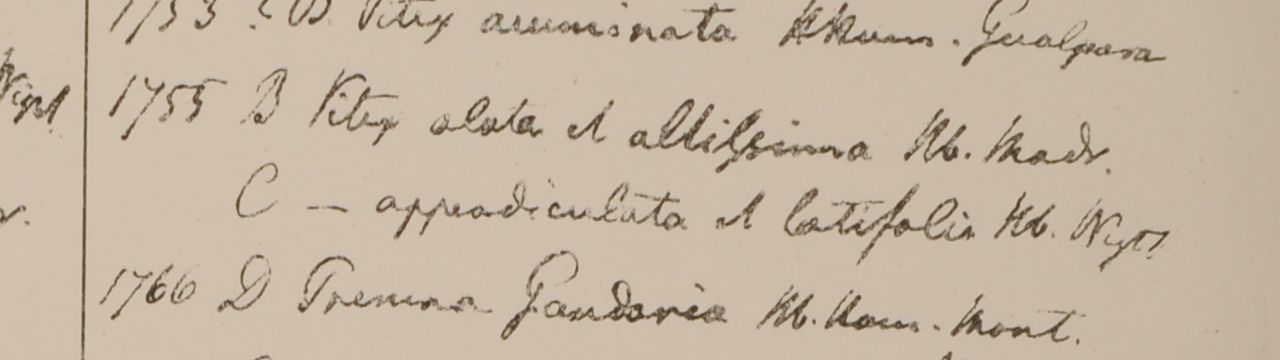 1753 ? B. Vitex acuminata HHam. Gualpara
1755 B Vitex alata et altissima Hb. Madr.
C — appendiculata et latifolia Hb. Wight
1766 D Premna Gandaria Hb. Ham. Mont.